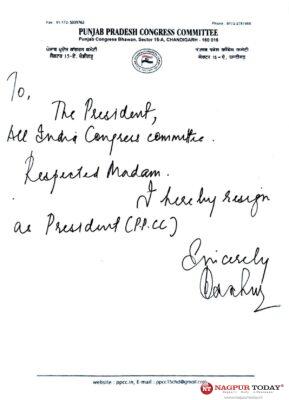 PUNJAB PRADESH CONGRESS COMMITTEE
Punjab Congress Bhawan, Sector 15-A, CHANDIGARH - 160 018
To,
The President,
All India Congress committee.
Respected Madam.
I hereby resign
as President (P.P.CC)
Sincerely
website : ppcc.in, E-mail : ppcc15chd@gmail.com
NT NAGPUR TODAY
www.nagpurtoday.in